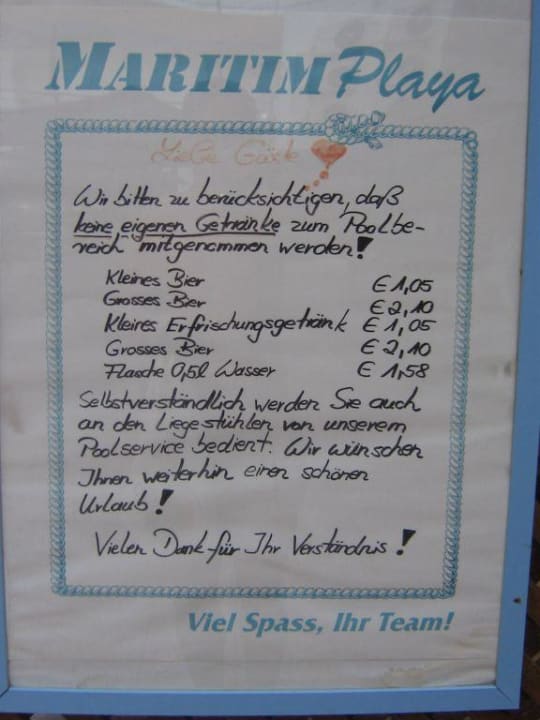 MARITIM Playa
Liebe Gäste
Wir bitten zu berücksichtigen, daß
keine eigenen Getränke zum Poolbe-
reich mitgenommen werden!
Kleines Bier € 1,05
Grosses Bier € 2,10
Kleines Erfrischungsgetränk € 1,05
Grosses Bier € 2,10
Flasche 0,5l Wasser € 1,58
Selbstverständlich werden Sie auch
an den Liegestühlen von unserem
Poolservice bedient. Wir wünschen
Ihnen weiterhin einen schönen
Urlaub!
Vielen Dank für Ihr Verständnis!
Viel Spass, Ihr Team!